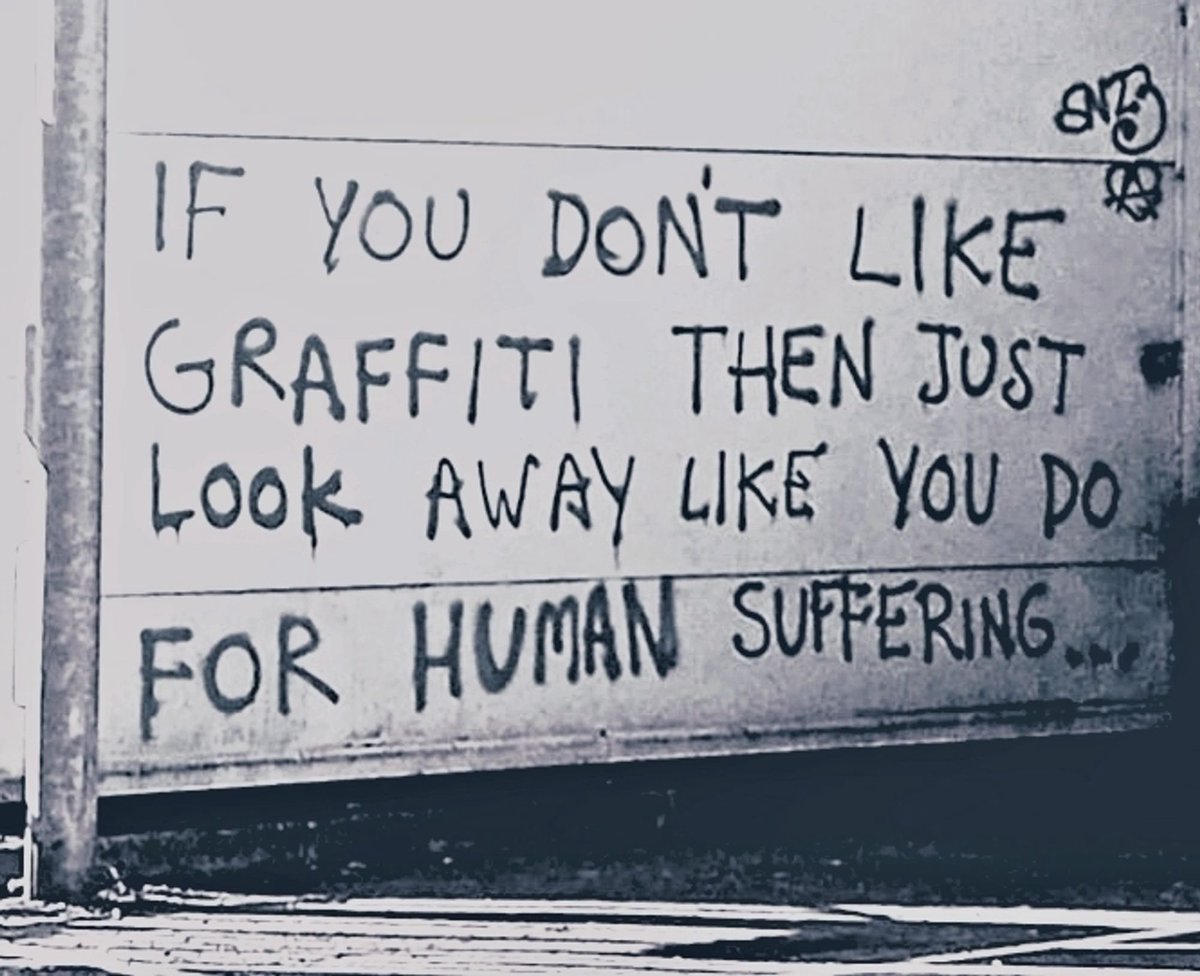 IF YOU DON'T LIKE
GRAFFITI THEN JUST
LOOK AWAY LIKE YOU DO
FOR HUMAN SUFFERING...